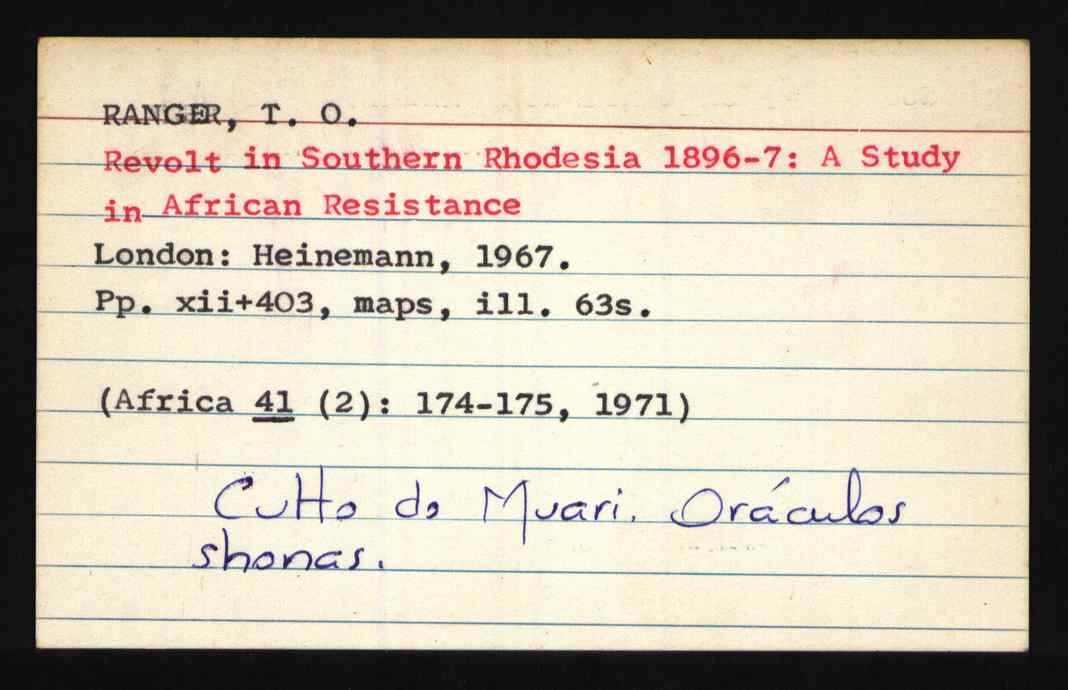 RANGER, T. O.
Revolt in Southern Rhodesia 1896-7: A Study
in African Resistance
London: Heinemann, 1967.
Pp. xii+403, maps, ill. 63s.
(Africa 41 (2): 174-175, 1971)
Culto do Muari. Oráculos
shonas.